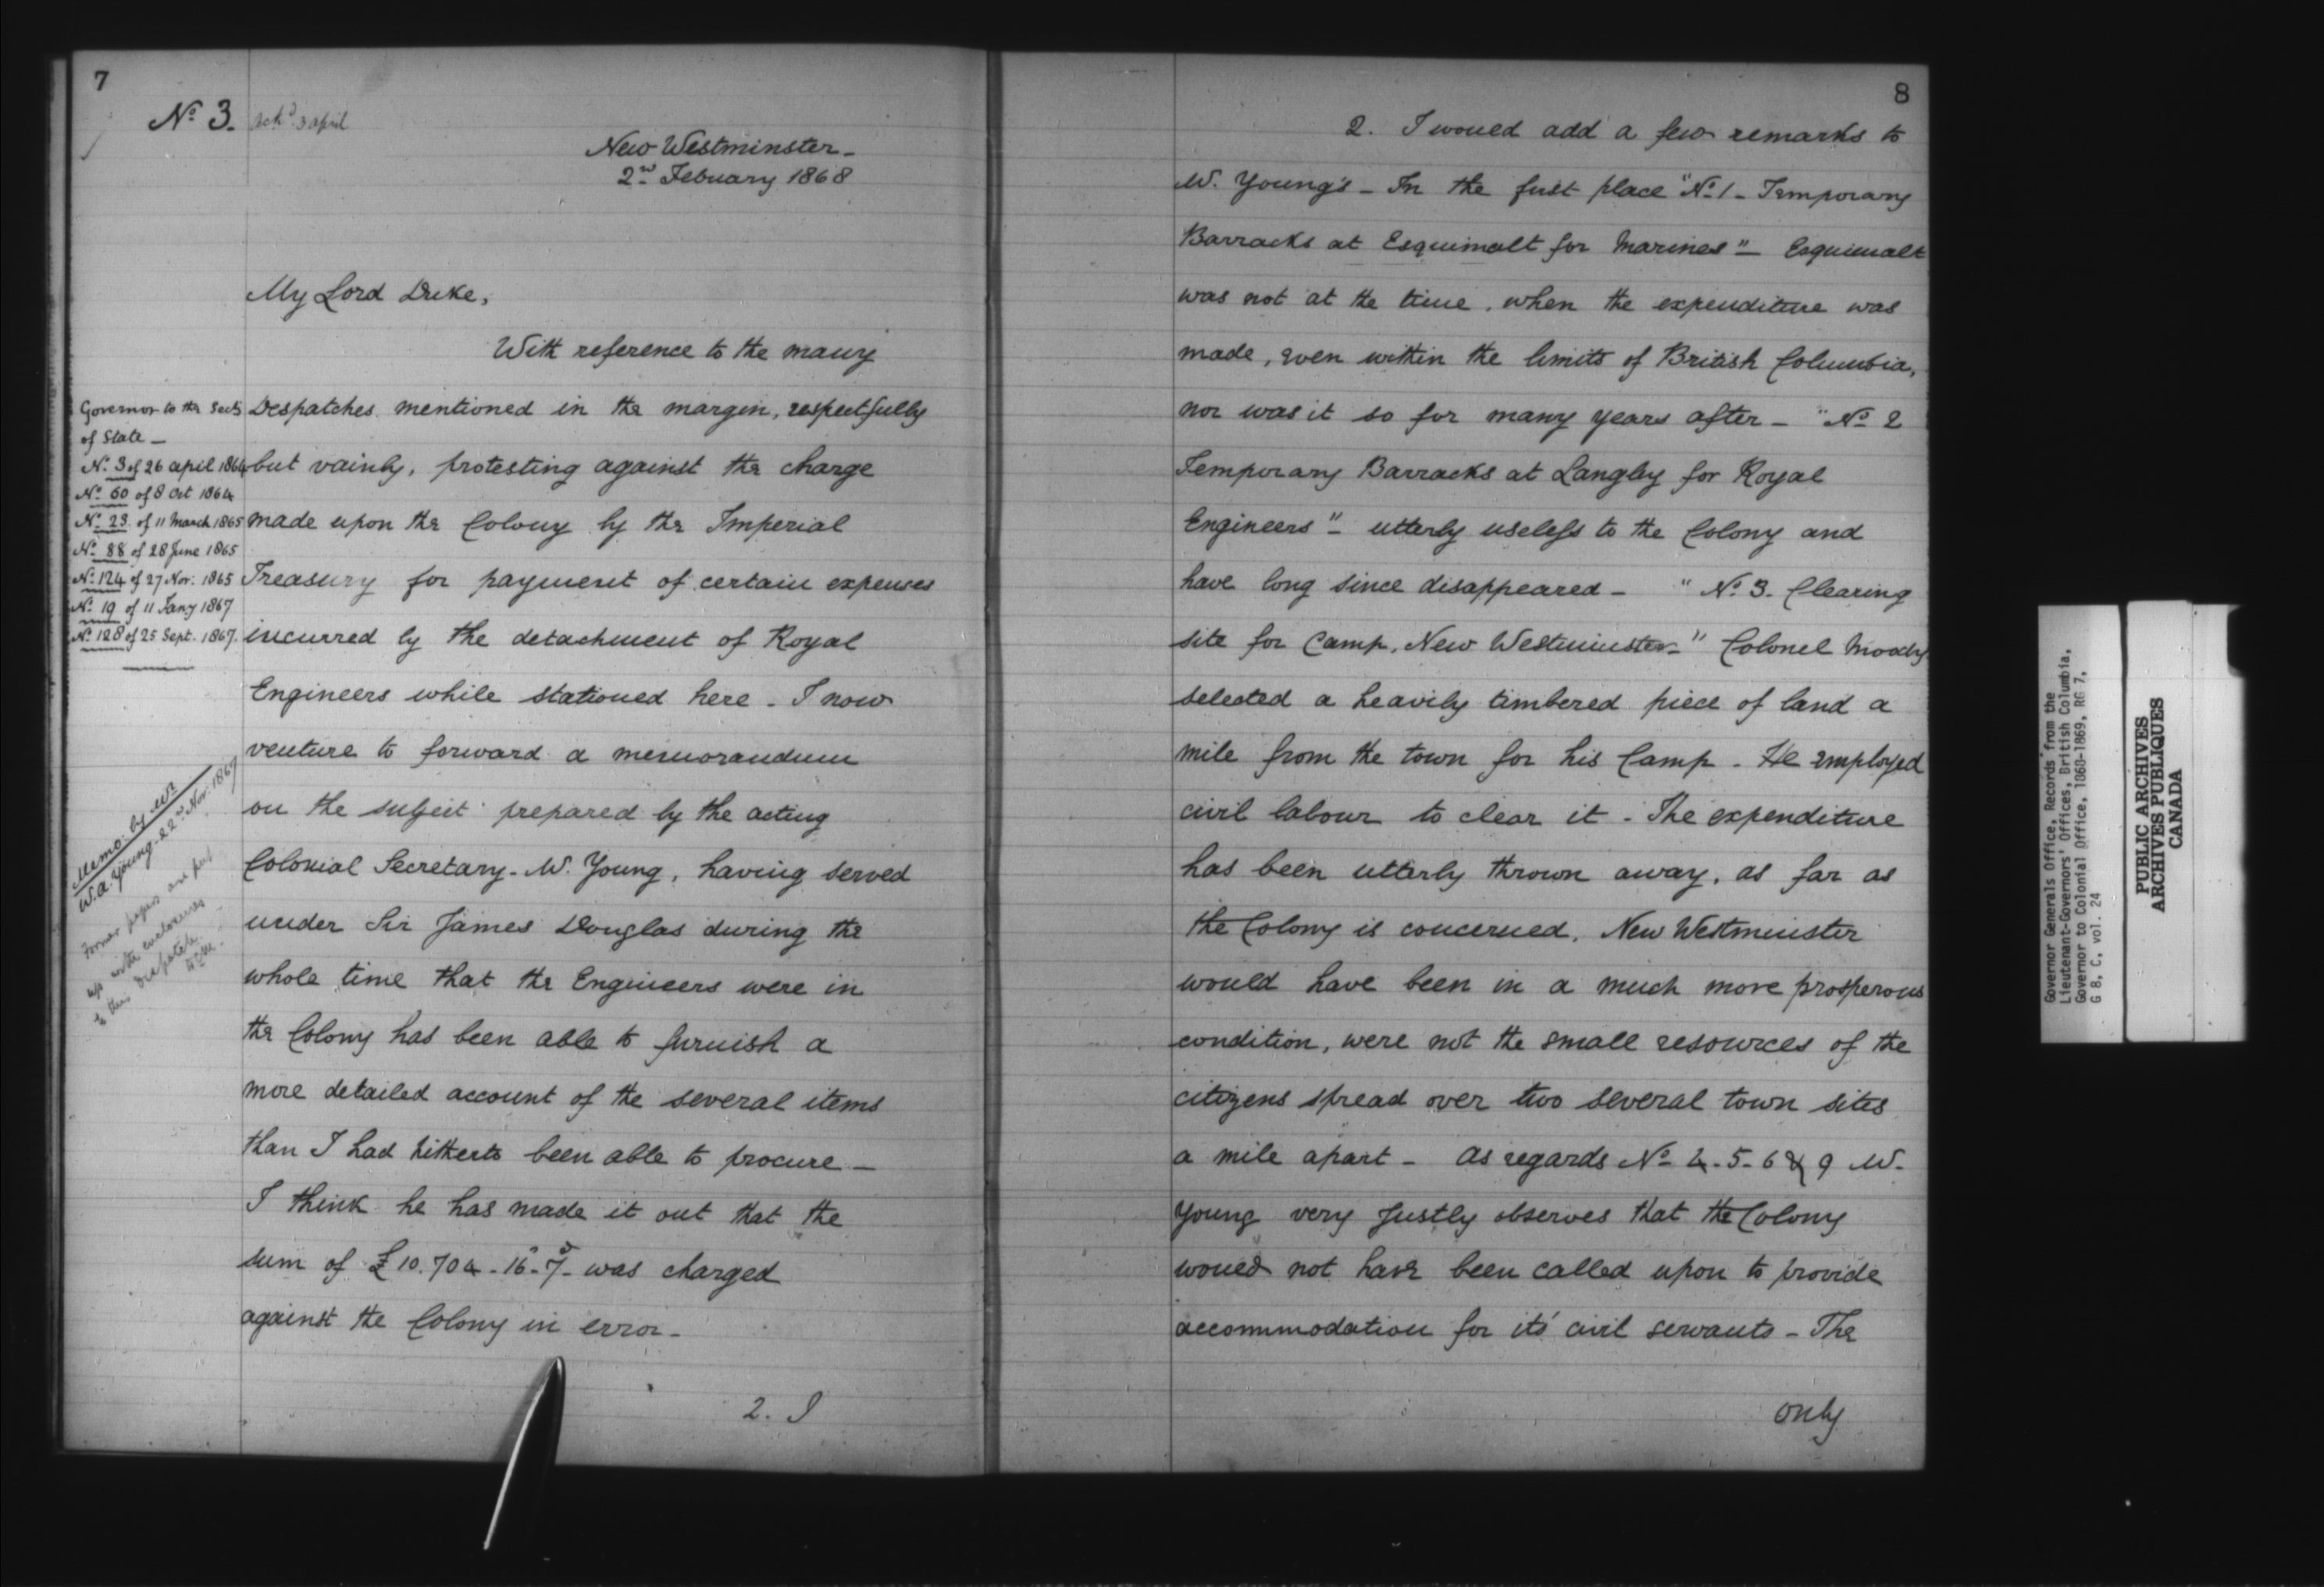 7
No 3.
ackd 3 april
New Westminster-
2nd Febuary 1868
My Lord Duke,
With reference to the many
Governor to the Secty
of State -
No 3 of 26 april 1864
No 60 of 8 Oct 1864
No 23. of 11 March 1865
No 88 of 28 June 1865
No 124 of 27 Nov: 1865
No 19 of 11 Jany 1867
No 128 of 25 Sept. 1867.
Despatches mentioned in the margin, respectfully
but vainly, protesting against the charge
made upon the Colony by the Imperial
Treasury for payment of certain expenses
incurred by the detachment of Royal
Engineers while stationed here - I now
venture to forward a memorandum
Memo: by Mr
W.A. Young - 22nd Nov: 1867
Former papers are put
up with enclosures
to this despatch.
on the subject prepared by the acting
Colonial Secretary - W. Young, having served
under Sir James Douglas during the
whole time that the Engineers were in
the Colony has been able to furnish a
more detailed account of the several items
than I had hitherto been able to procure -
I think he has made it out that the
sum of £10.704-16s-7d- was charged
against the Colony in error -
2. I
8
2. I would add a few remarks to
W. Young's - In the first place "No 1 - Temporary
Barracks at Esquimalt for Marines" - Esquimalt
was not at the time, when the expenditure was
made, even within the limits of British Columbia,
nor was it so for many years after - "No 2
Temporary Barracks at Langley for Royal
Engineers" - utterly useless to the Colony and
have long since disappeared - "No 3. Clearing
site for Camp, New Westminster-" Colonel Moody
selected a heavily timbered piece of land a
mile from the town for his Camp - He employed
civil labour to clear it - The expenditure
has been utterly thrown away, as far as
the Colony is concerned. New Westminster
would have been in a much more prosperous
condition, were not the small resources of the
citizens spread over two several town sites
a mile apart - As regards No 4-5-6 & 9 W.
Young very Justly observes that the Colony
would not have been called upon to provide
accommodation for its' civil servants - The
only
Governor Generals Office, Records from the
Lieutenant-Governors' Offices, British Columbia,
Governor to Colonial Office, 1868-1869, RG 7,
G 8, C, vol. 24
PUBLIC ARCHIVES
ARCHIVES PUBLIQUES
CANADA